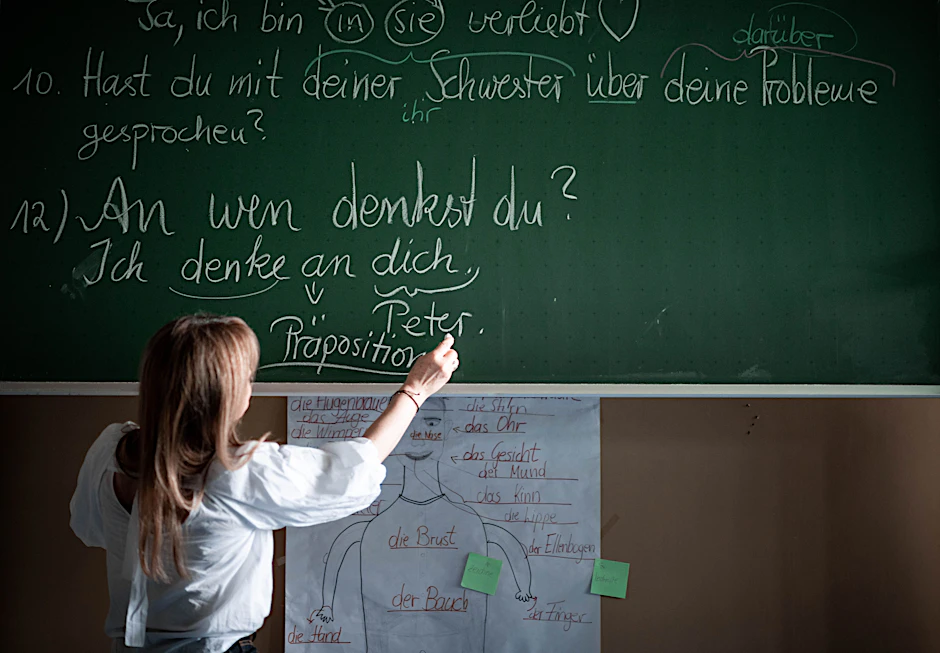 Ja, ich bin in sie verliebt
darüber
10. Hast du mit deiner Schwester über deine Probleme
ihr
gesprochen?
12) An wen denkst du?
Ich denke an dich.
Peter.
Präposition
das Auge
die Wimper
die Nase
die Stirn
das Ohr
das Gesicht
der Mund
das Kinn
die Lippe
der Ellenbogen
die Brust
der Bauch
der Finger
die Hand